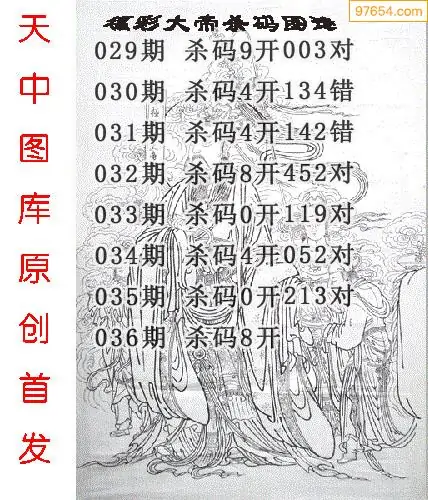 97654.com
福彩大帝杀码图谜
029期 杀码9开003对
030期 杀码4开134错
031期 杀码4开142错
032期 杀码8开452对
033期 杀码0开119对
034期 杀码4开052对
035期 杀码0开213对
036期 杀码8开
天中图库原创首发